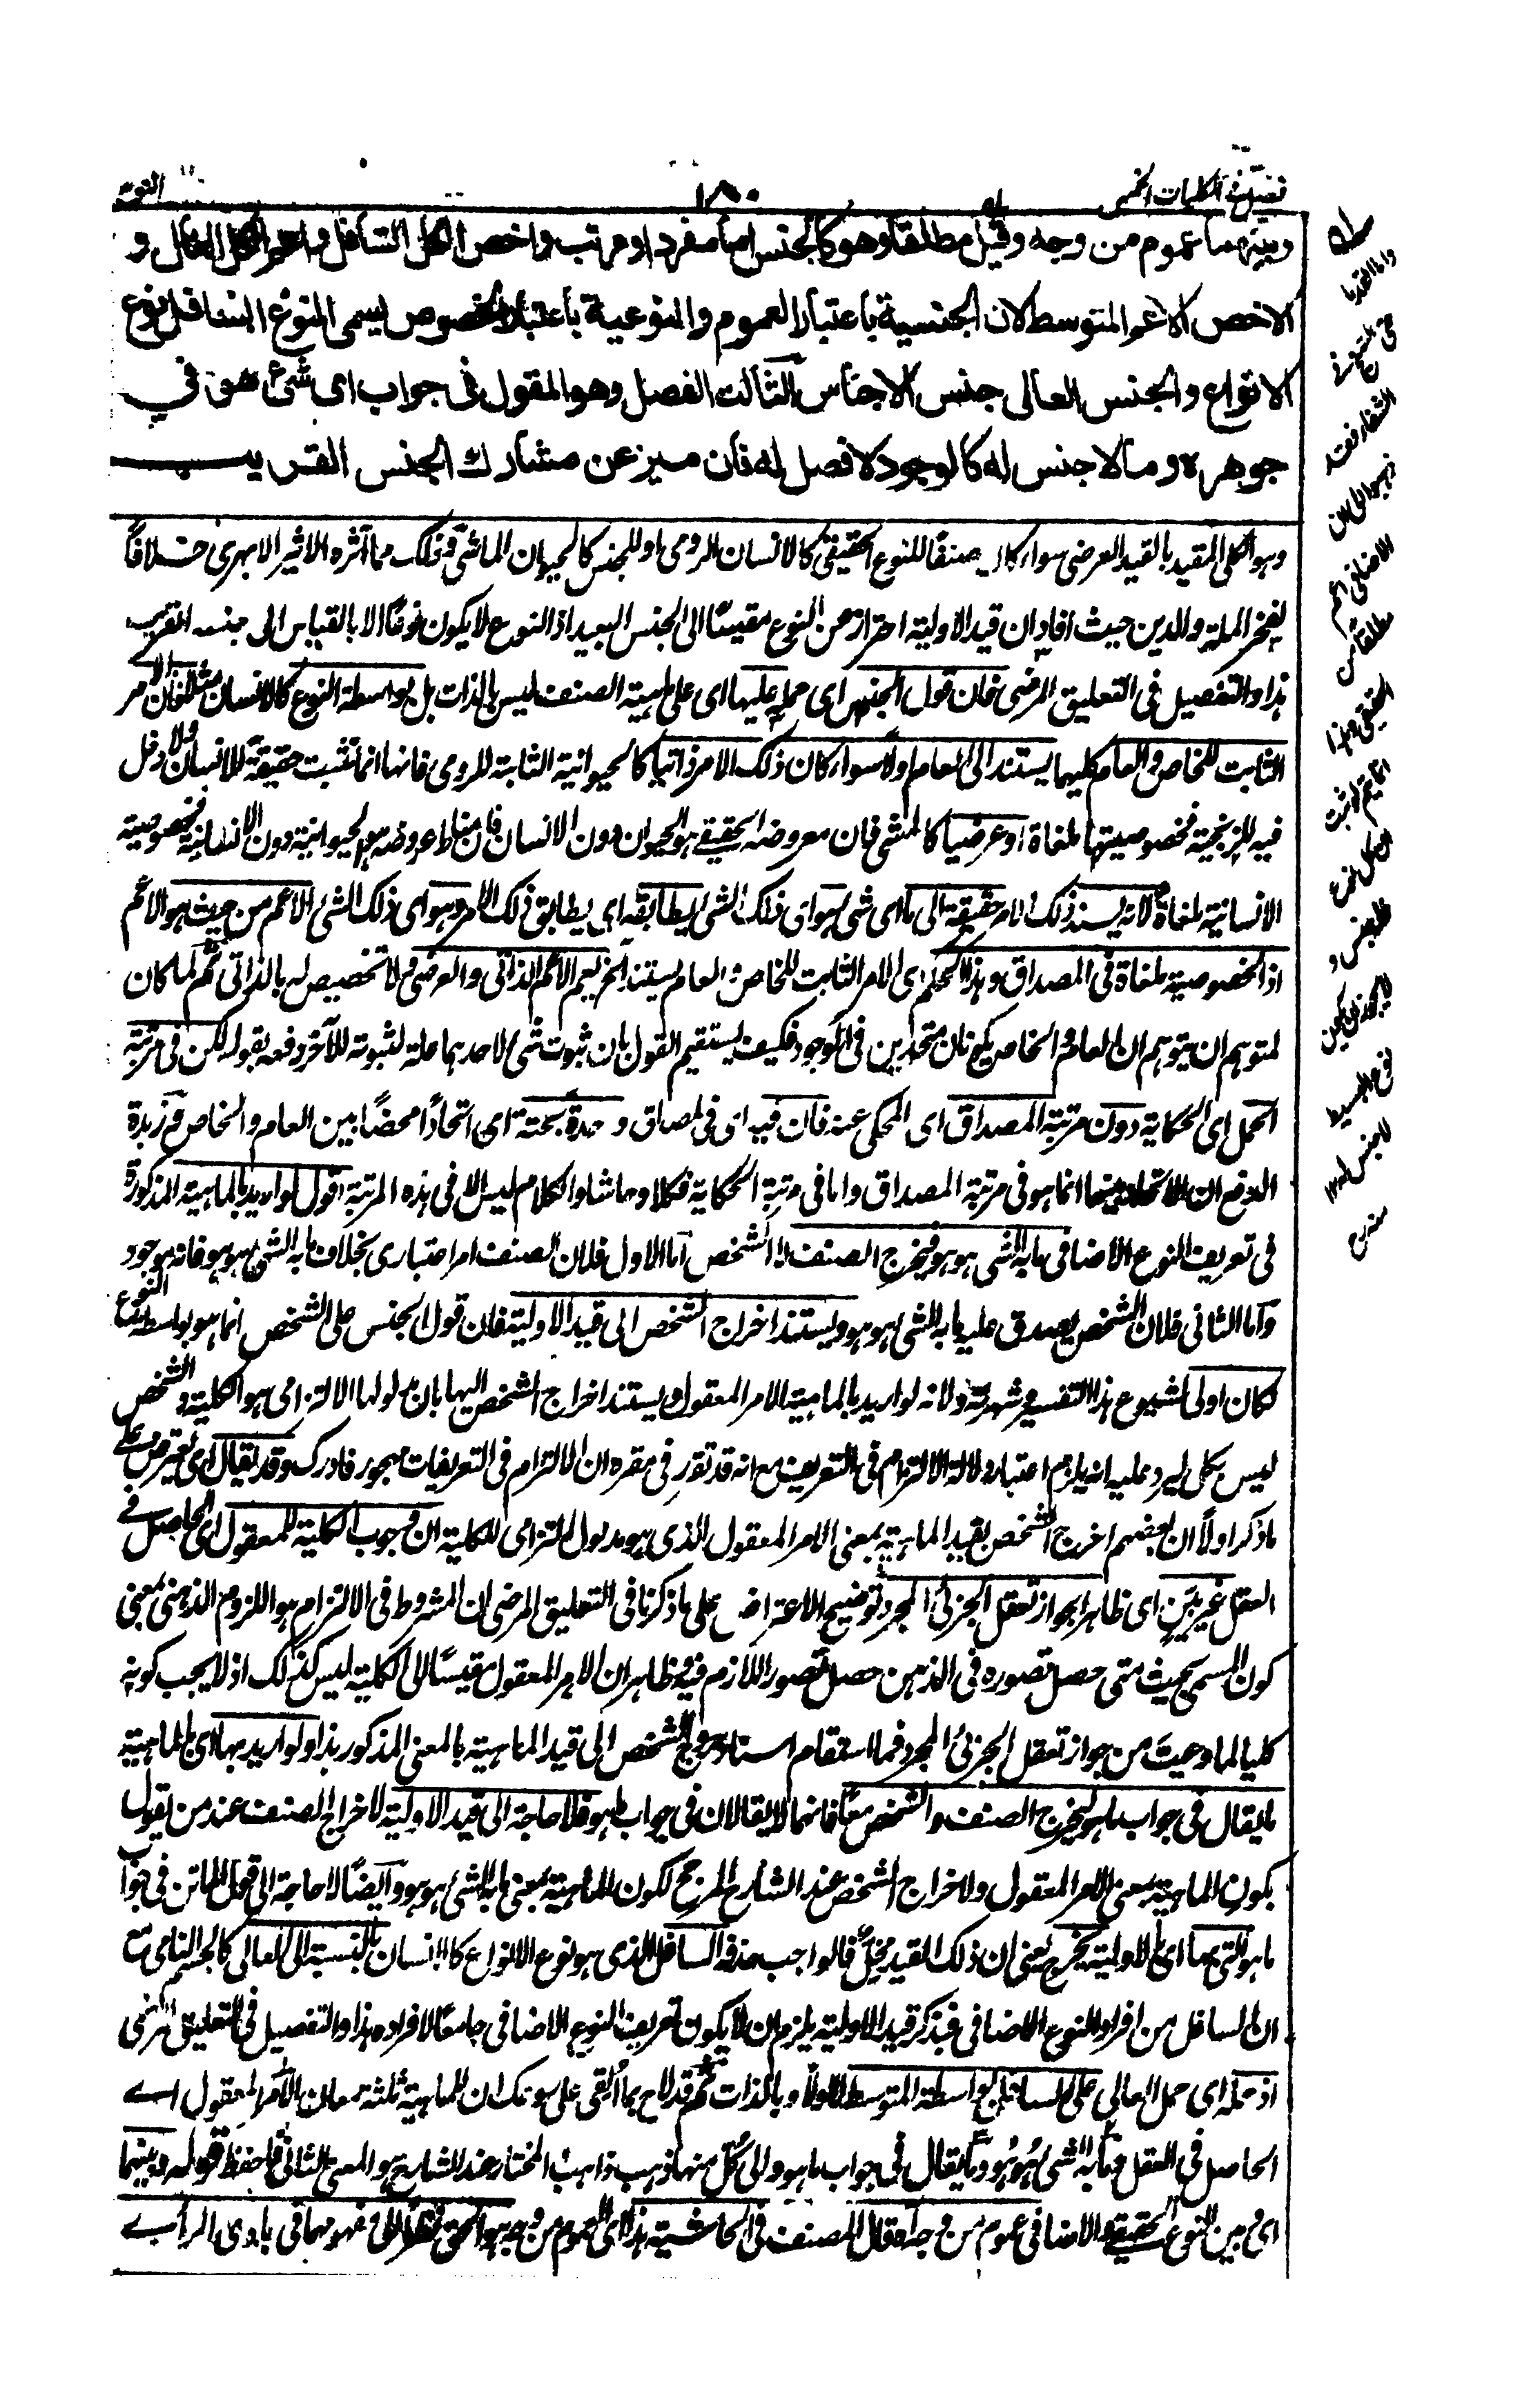 تفصيل في الكليات الخمس
١٨٠
النوع
وبينهما عموم من وجه وقيل مطلقا وهو كالجنس اما مفرد او مرتب واخص الكل السافل واعم الكل العالى و
الاخص الاعم المتوسط لان الجنسية باعتبار العموم والنوعية باعتبار الخصوص يسمى النوع السافل نوع
الانواع والجنس العالى جنس الاجناس الثالث الفصل وهو المقول فى جواب اى شئ هو في
جوهره وما لا جنس له كالوجود لا فصل له فان ميز عن مشارك الجنس القريب
وهو الكلى المقيد بالقيد العرضى سواء كان صنفًا للنوع الحقيقى كالانسان الرومى او للجنس كالحيوان الماشى فذلك مما آثره الاثير الابهرى خلافًا
لفخر الملة والدين حيث افاد ان قيد الاولية احتراز عن النوع مقيسًا الى الجنس البعيد اذ النوع لا يكون نوعًا الا بالقياس الى جنسه القريب
هذا والتفصيل فى التعليق المرضى فان قول الجنس اى حمله عليها اى على مهية الصنف ليس بالذات بل بواسطة النوع كالانسان مثلا فان الامر
الثابت للخاص والعام كليهما يستند الى العام اولًا سواء كان ذلك الامر ذاتيا كالحيوانية الثابتة للرومى فانها انما تثبت حقيقة للانسان ولا دخل
فيه للزنجية فخصوصيتها ملغاة او عرضيا كالمشى فان معروضه الحقيقے هو الحيوان دون الانسان فان مناط عروضه هو الحيوانية دون الانسانية فخصوصية
الانسانية ملغاة لانه يسند ذلك الامر حقيقة الى ما اى شئ هو اى ذلك الشئ يطابقه اى يطابق ذلك الامر وهو اى ذلك الشئ الاعم من حيث هو الاعم
اذ الخصوصية ملغاة فى المصداق وهذا الحكم اى الامر الثابت للخاص والعام يستند الخ يعم الاعم الذاتى والعرضى لا تخصيص له بالذاتى ثم لما كان
لمتوهم ان يتوهم ان العام والخاص يكونان متحدين فى الوجود فكيف يستقيم القول بان ثبوت شئ لاحدهما علة لثبوته للآخر دفعه بقوله لكن فى مرتبة
الحمل اى الحكاية دون مرتبة المصداق اى المحكى عنه فان فيه اى فى المصداق وحدة بحتة اى اتحادًا محضًا بين العام والخاص فزبدة
الدفع ان الاتحاد بينهما انما هو فى مرتبة المصداق واما فى مرتبة الحكاية فكلا وحاشا والكلام ليس الا فى هذه المرتبة اقول لو اريد بالماهية المذكورة
فى تعريف النوع الاضافى ما به الشئ هو هو فيخرج الصنف لا الشخص اما الاول فلان الصنف امر اعتبارى بخلاف ما به الشئ هو هو فانه موجود
واما الثانى فلان الشخص يصدق عليه ما به الشئ هو هو ويستند اخراج الشخص الى قيد الاولية فان قول الجنس على الشخص انما هو بواسطة النوع
لكان اولى لشيوع هذا التفسير وشهرته ولانه لو اريد بالماهية الامر المعقول ويستند اخراج الشخص اليها بان مدلولها الالتزامى هو الكلية والشخص
ليس بكلى يرد عليه انه يلزم اعتبار دلالة الالتزام فى التعريف مع انه قد تقرر فى مقره ان الالتزام فى التعريفات مهجور فادرك وقد يقال اى يعترض على
ما ذكر اولًا ان بعضهم اخرج الشخص بقيد الماهية بمعنى الامر المعقول الذى هو مدلول التزامى للكلية ان وجوب الكلية للمعقول اى الحاصل فے
العقل غير بيّن اى ظاهر لجواز تعقل الجزئى المجرد توضيح الاعتراض على ما ذكرنا فى التعليق المرضى ان المشروط فى الالتزام هو اللزوم الذهنى بمعنى
كون المسمى بحيث متى حصل تصوره فى الذهن حصل تصور اللازم فيه وظاهر ان الامر المعقول مقيسًا الى الكلية ليس كذلك اذ لا يجب كونه
كليا لما وعيت من جواز تعقل الجزئى المجرد فما استقام اسناد خروج الشخص الى قيد الماهية بالمعنى المذكور هذا ولو اريد بها اى بالماهية
ما يقال فى جواب ما هو ليخرج الصنف والشخص معًا فانهما لا يقالان فى جواب ما هو فلا حاجة الى قيد الاولية لاخراج الصنف عند من يقول
بكون الماهية بمعنى الامر المعقول ولاخراج الشخص عند الشارح المرجح لكون الماهية بمعنى ما به الشئ هو هو وايضًا لا حاجة الى قول الماتن فى جواب
ما هو التى بها اى بالاولية يخرج يعنى ان ذلك القيد مخل فالواجب حذفه السافل الذى هو نوع الانواع كالانسان بالنسبة الى العالى كالجسم النامى مع
ان السافل من افراد النوع الاضافى فبذكر قيد الاولية يلزم ان لا يكون تعريف النوع الاضافى جامعًا لافراده هذا والتفصيل فى التعليق المرضى
اذ حمله اى حمل العالى على السافل بواسطة المتوسط لا اولًا وبالذات ثم قد لاح بما القى على سمعك ان للماهية ثلثة معان الامر المعقول اے
الحاصل فى العقل وما به الشئ هو هو وما يقال فى جواب ما هو والى كل منها ذهب ذاهب المختار عند الشارح هو المعنى الثانى فاحفظ قوله وبينهما
اى بين النوع الحقيقے والاضافى عموم من وجه قال المصنف فى الحاشية هذا اى العموم من وجه هو الحق نظرًا الى مفهومهما فى بادى الراے